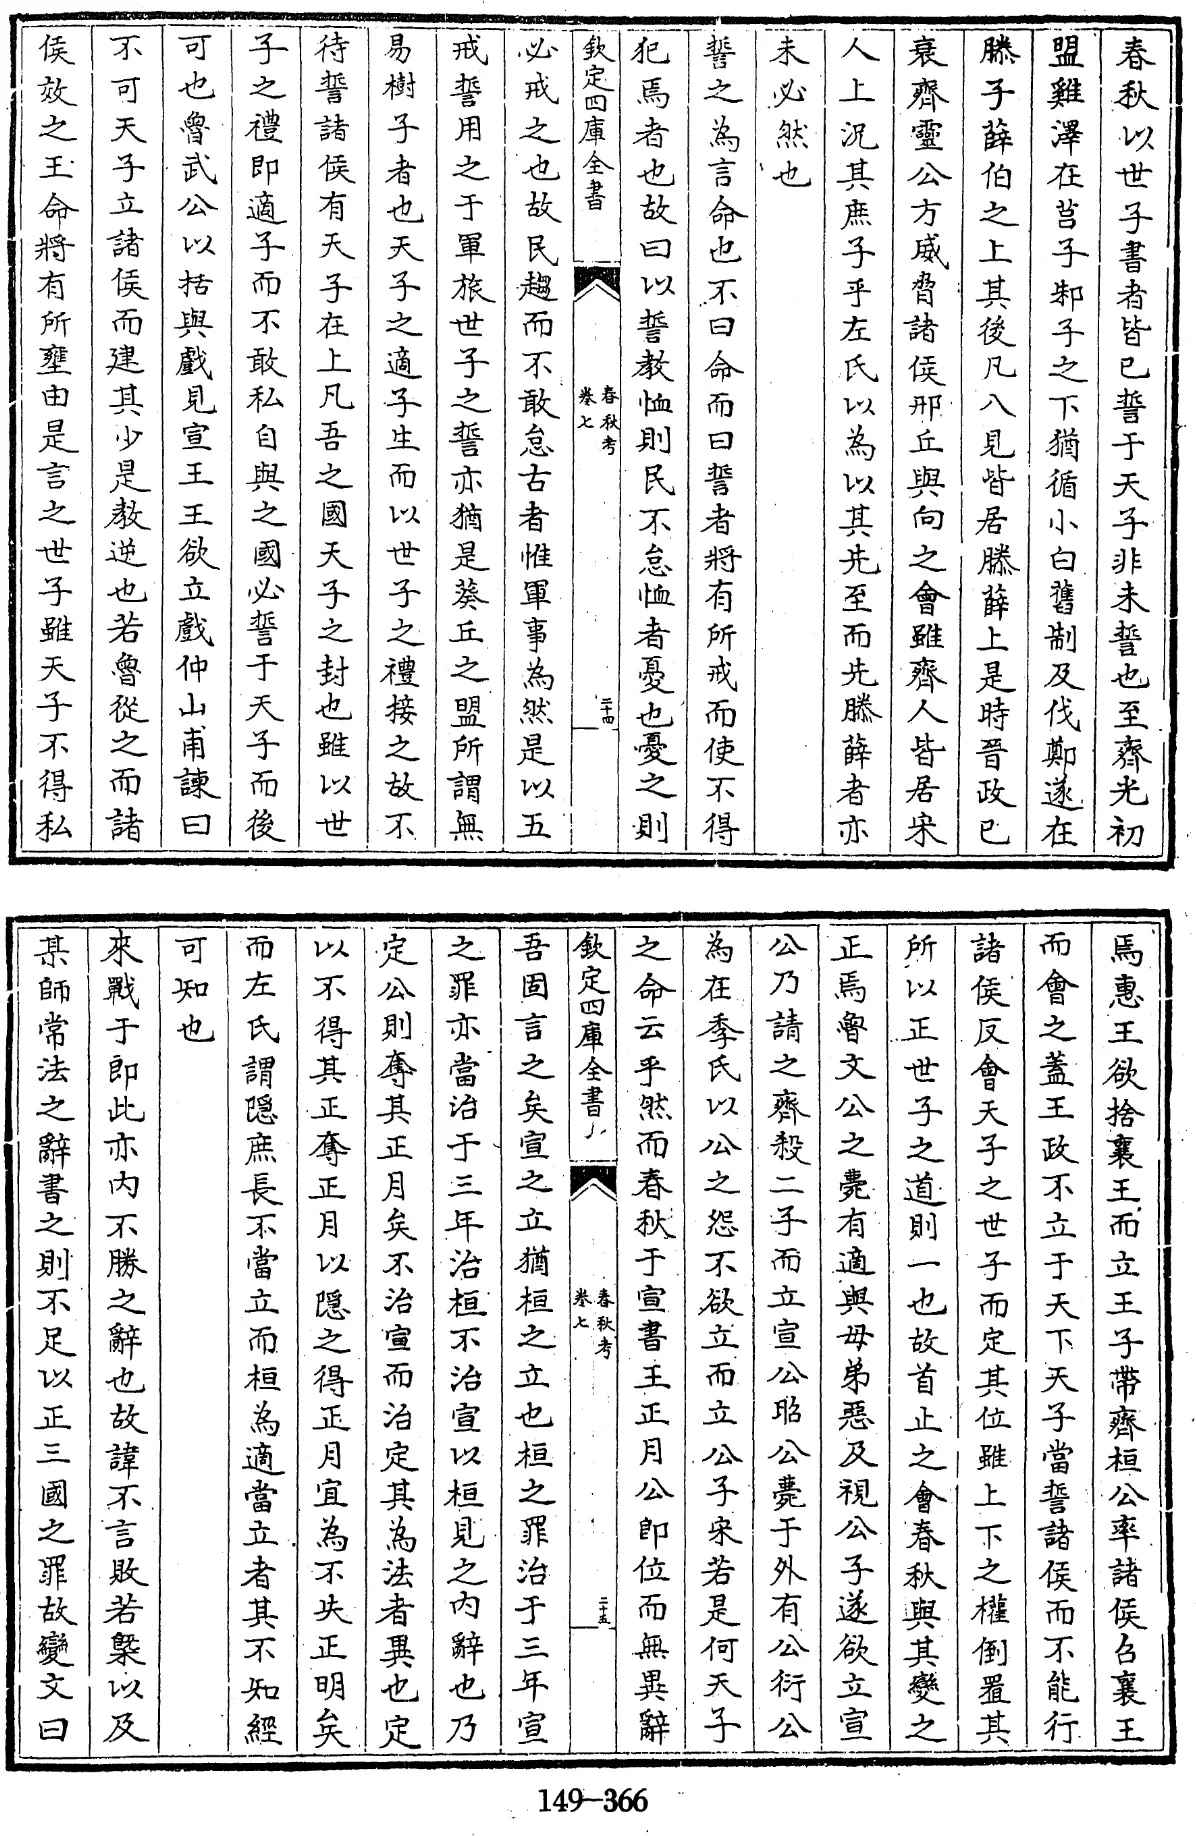 春秋以世子書者皆已誓于天子非未誓也至齊光初
盟雞澤在莒子邾子之下猶循小白舊制及伐鄭遂在
滕子薛伯之上其後凡八見皆居滕薛上是時晉政已
衰齊靈公方威脅諸侯邢丘與向之會雖齊人皆居宋
人上況其庶子乎左氏以為以其先至而先滕薛者亦
未必然也
誓之為言命也不曰命而曰誓者將有所戒而使不得
犯焉者也故曰以誓教恤則民不怠恤者憂也憂之則
欽定四庫全書
春秋考
卷七
二十四
必戒之也故民趨而不敢怠古者惟軍事為然是以五
戒誓用之于軍旅世子之誓亦猶是葵丘之盟所謂無
易樹子者也天子之適子生而以世子之禮接之故不
待誓諸侯有天子在上凡吾之國天子之封也雖以世
子之禮即適子而不敢私自與之國必誓于天子而後
可也魯武公以括與戲見宣王王欲立戲仲山甫諫曰
不可天子立諸侯而建其少是教逆也若魯從之而諸
侯效之王命將有所壅由是言之世子雖天子不得私
焉惠王欲捨襄王而立王子帶齊桓公率諸侯召襄王
而會之蓋王政不立于天下天子當誓諸侯而不能行
諸侯反會天子之世子而定其位雖上下之權倒置其
所以正世子之道則一也故首止之會春秋與其變之
正焉魯文公之薨有適與母弟惡及視公子遂欲立宣
公乃請之齊殺二子而立宣公昭公薨于外有公衍公
為在季氏以公之怨不欲立而立公子宋若是何天子
之命云乎然而春秋于宣書王正月公即位而無異辭
欽定四庫全書
春秋考
卷七
二十五
吾固言之矣宣之立猶桓之立也桓之罪治于三年宣
之罪亦當治于三年治桓不治宣以桓見之內辭也乃
定公則奪其正月矣不治宣而治定其為法者異也定
以不得其正奪正月以隱之得正月宜為不失正明矣
而左氏謂隱庶長不當立而桓為適當立者其不知經
可知也
來戰于郎此亦內不勝之辭也故諱不言敗若槩以及
某師常法之辭書之則不足以正三國之罪故變文曰
149-366